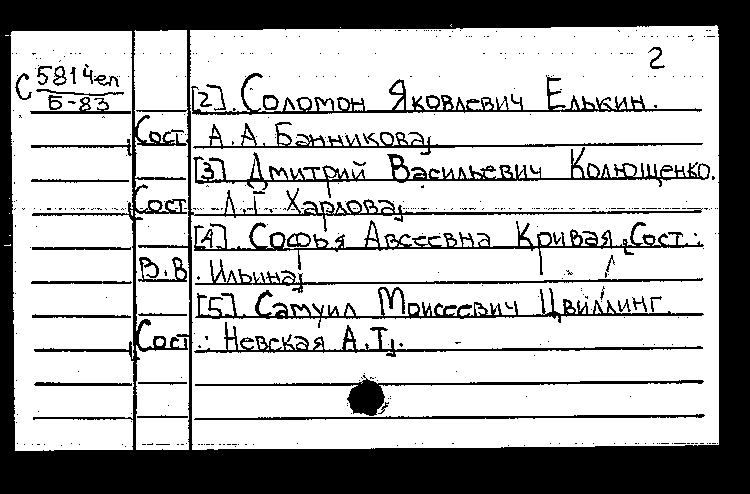 2
С 5814чел
Б-83
[2]. Соломон Яковлевич Елькин.
[Сост. А.А. Банникова].
[3]. Дмитрий Васильевич Колющенко.
[Сост. Л.Г. Харлова].
[4]. Софья Авсеевна Кривая [Сост.:
В.В. Ильина].
[5]. Самуил Моисеевич Цвиллинг.
[Сост.: Невская А.Т.].